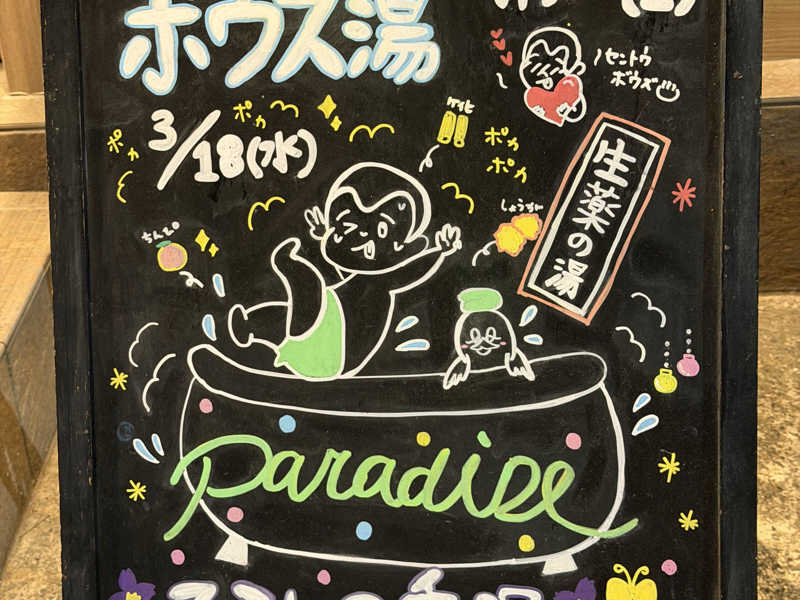 ホウス湯
セントウ
ボウズ
3/18(水)
ポカ
ポカ
ケイヒ
ポカ
ポカ
生薬の湯
しょうが
ちんぴ
paradise